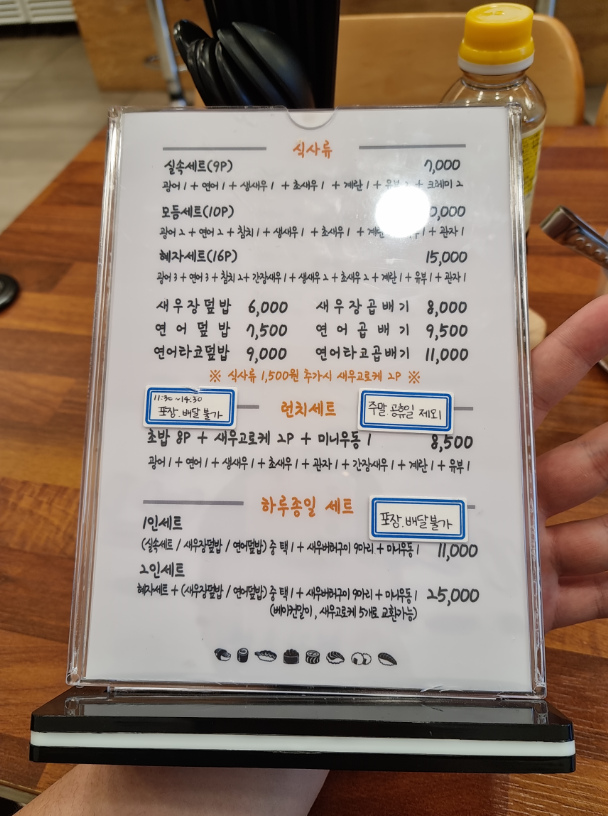 식사류
실속세트(9P) 7,000
광어 1 + 연어 1 + 생새우 1 + 초새우 1 + 계란 1 + 유부 + 크래미 2
모듬세트(10P) 0,000
광어 2 + 연어 2 + 참치 1 + 생새우 1 + 초새우 1 + 계란 + 관자 1
혜자세트(16P) 15,000
광어 3 + 연어 3 + 참치 2 + 간장새우 1 + 생새우 2 + 초새우 2 + 계란 1 + 유부 1 + 관자 1
새우장덮밥 6,000 새우장곱배기 8,000
연어덮밥 7,500 연어곱배기 9,500
연어타코덮밥 9,000 연어타코곱배기 11,000
※ 식사류 1,500원 추가시 새우고로케 2P ※
11:30 ~14:30
포장.배달 불가
런치세트
주말 공휴일 제외
초밥 8P + 새우고로케 2P + 미니우동 1 8,500
광어 1 + 연어 1 + 생새우 1 + 초새우 1 + 관자 1 + 간장새우 1 + 계란 1 + 유부 1
하루종일 세트
포장.배달불가
1인세트
(실속세트 / 새우장덮밥 / 연어덮밥) 중 택 1 + 새우버터구이 9마리 + 미니우동 1 11,000
2인세트
혜자세트 + (새우장덮밥 / 연어덮밥) 중 택 1 + 새우버터구이 9마리 + 미니우동 1 25,000
(베이컨말이, 새우고로케 5개로 교환가능)